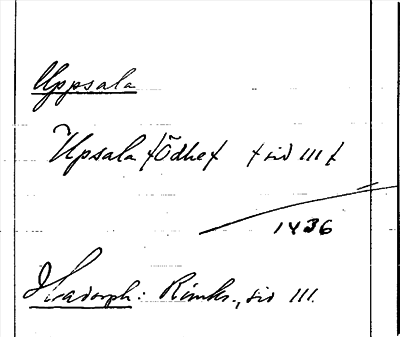 Uppsala
Upsala /Ödhe/ / sid 111 /
1436
Hadorph: Rimkr., sid 111.